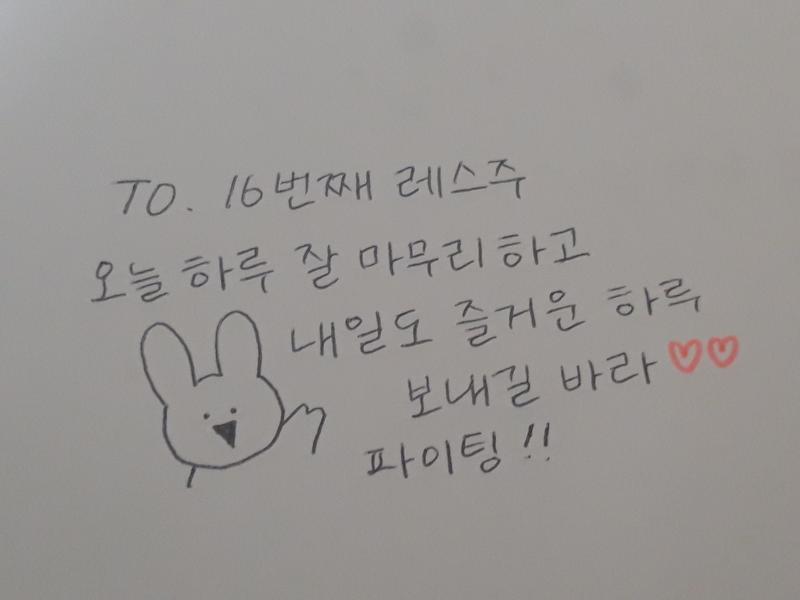 TO. 16번째 레스주
오늘 하루 잘 마무리하고
내일도 즐거운 하루
보내길 바라 ♡♡
파이팅!!